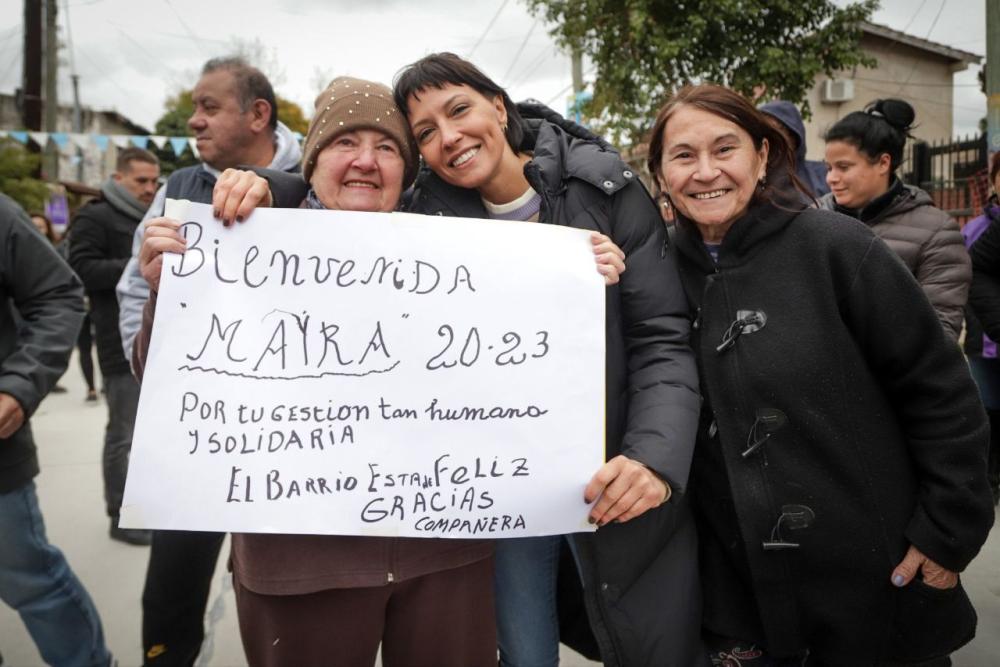 BienveniDA
"MAYRA" 20-23
POR tu GESTION tan humana
Y SOLIDARIA
EL BARRIO ESTA de FELIZ
GRACIAS
COMPAÑERA